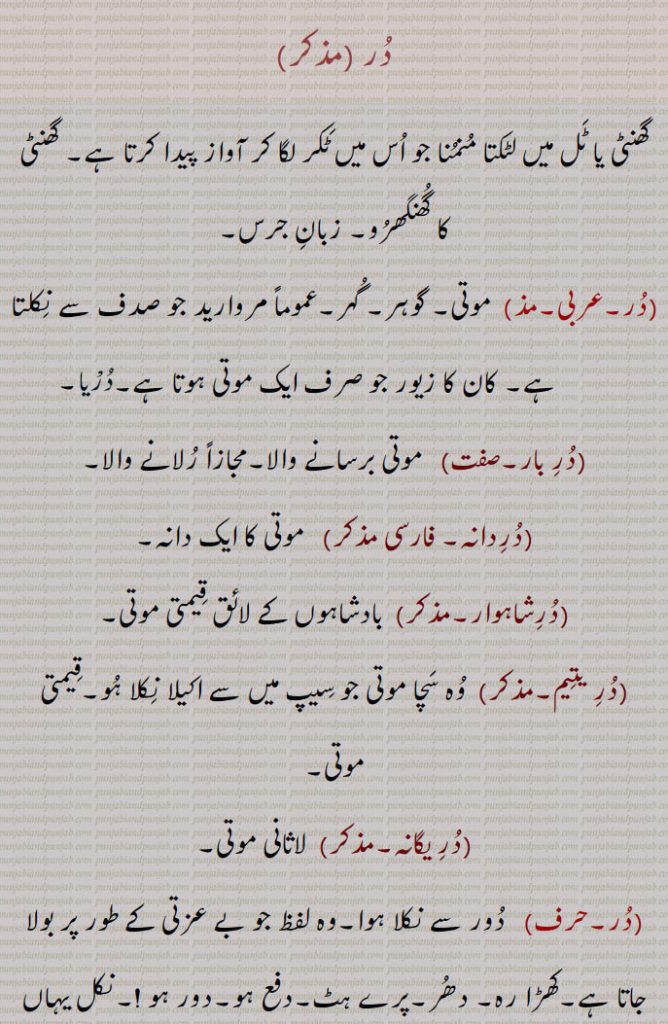 دُر (مذکر)
گھنٹی یا ٹَل میں لٹکتا مُنمُنا جو اُس میں ٹکر لگا کر آواز پیدا کرتا ہے۔ گھنٹی
کا گُھنگھرُو۔ زبانِ جرس۔
(دُر۔عربی۔مذ) موتی۔ گوہر۔ گُہر۔عموماً مروارید جو صدف سے نِکلتا
ہے۔ کان کا زیور جو صرف ایک موتی ہوتا ہے۔دُرْیا۔
(دُرِ بار۔صفت) موتی برسانے والا۔مجازاً رُلانے والا۔
(دُرِدانہ۔ فارسی مذکر) موتی کا ایک دانہ۔
(دُرِشاہوار۔مذکر) بادشاہوں کے لائق قِیمتی موتی۔
(دُرِ یتِیم۔مذکر) وُہ سَچا موتی جو سِیپ میں سے اکیلا نِکلا ہُو۔قِیمتی
موتی۔
(دُرِ یگانہ۔مذکر) لاثانی موتی۔
(دُر۔حرف) دُور سے نکلا ہوا۔وہ لفظ جو بے عزتی کے طور پر بولا
جاتا ہے۔کھڑا رہ۔ دھُر۔پرے ہٹ۔دفع ہو۔دور ہو !۔نکل یہاں